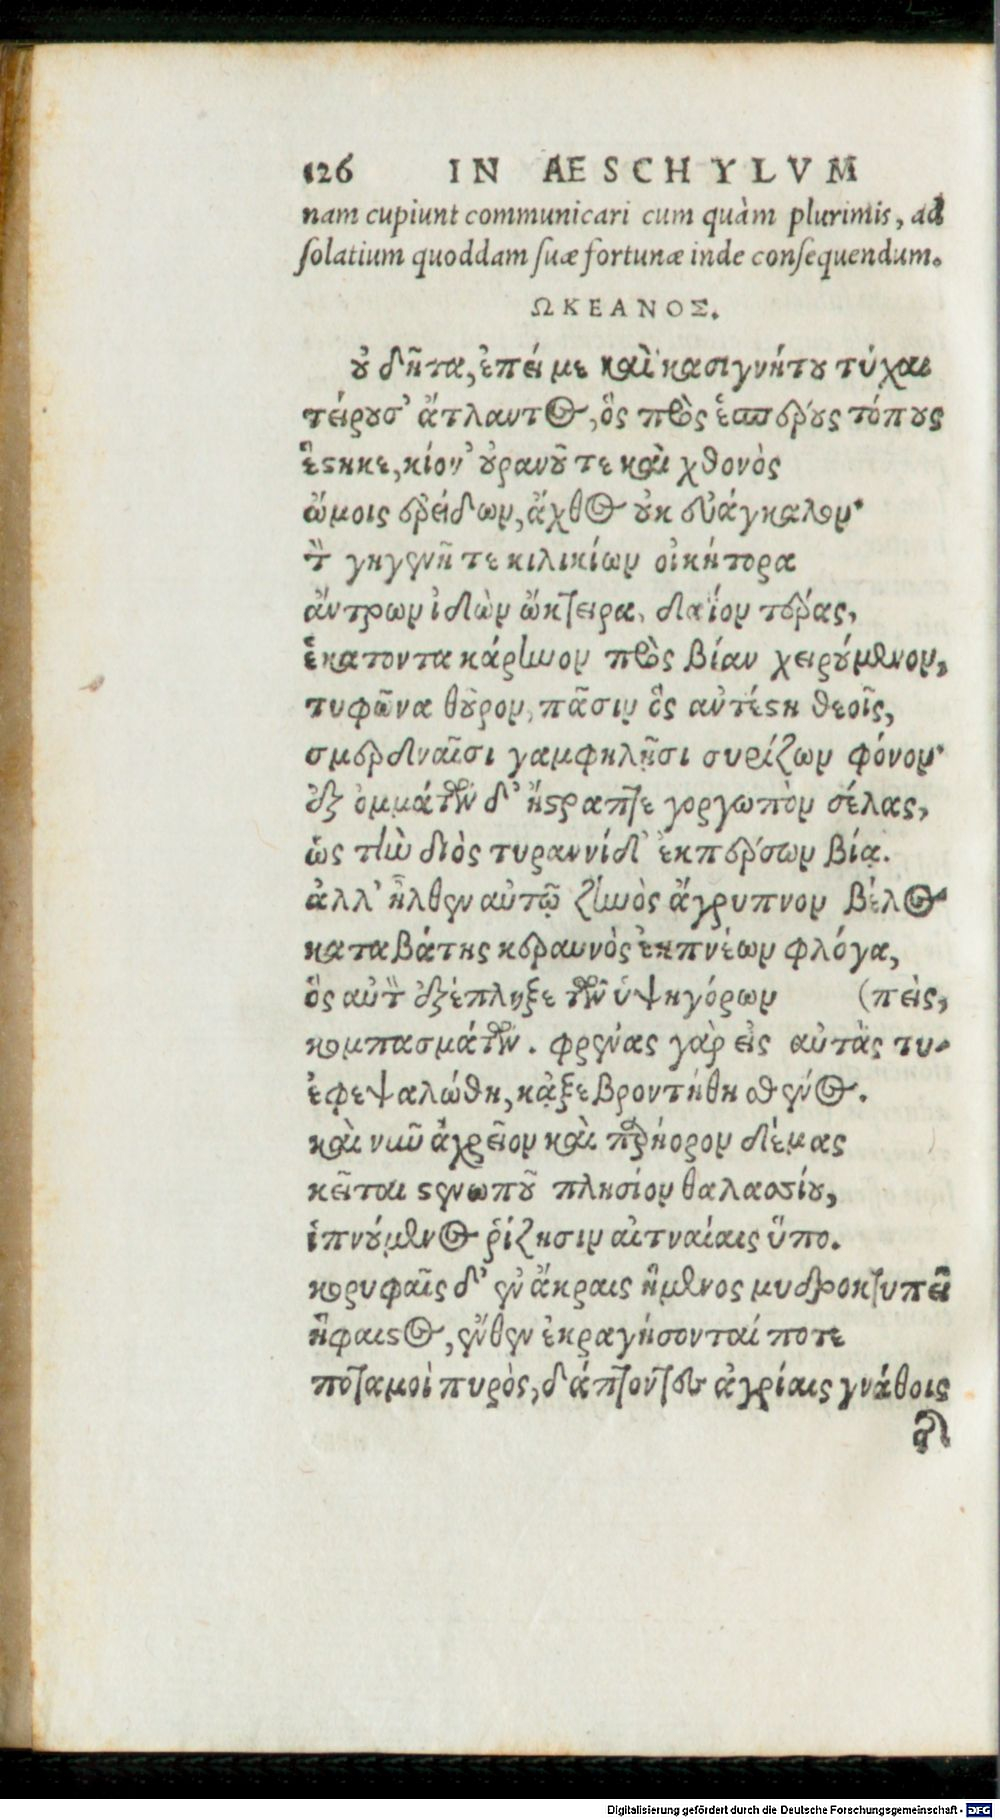 126 IN AESCHYLVM
nam cupiunt communicari cum quàm plurimis, ad
solatium quoddam suæ fortunæ inde consequendum.
ΩΚΕΑΝΟΣ.
οὐ δῆτα, ἐπεί με καὶ κασιγνήτου τύχαι
τείρουσ' ἄτλαντος, ὃς πρὸς ἑσπέρους τόπους
ἕστηκε, κίον' οὐρανοῦ τε καὶ χθονὸς
ὤμοις ἐρείδων, ἄχθος οὐκ εὐάγκαλον·
τὸν γηγενῆ τε κιλικίων οἰκήτορα
ἄντρων ἰδὼν ᾤκτειρα, δαΐον τέρας,
ἑκατοντακάρηνον πρὸς βίαν χειρούμενον,
τυφῶνα θοῦρον, πᾶσιν ὃς αὐτέστη θεοῖς,
σμερδναῖσι γαμφηλῇσι συρίζων φόνον·
ἐξ ὀμμάτων δ' ἤστραπτε γοργωπὸν σέλας,
ὡς τὴν διὸς τυραννίδ' ἐκπέρσων βίᾳ.
ἀλλ' ἦλθεν αὐτῷ ζηνὸς ἄγρυπνον βέλος
καταβάτης κεραυνὸς ἐκπνέων φλόγα,
ὃς αὐτὸν ἐξέπληξε τῶν ὑψηγόρων (πεὶς,
κομπασμάτων. φρένας γὰρ εἰς αὐτὰς τυ-
ἐφεψαλώθη, κἀξεβροντήθη σθένος.
καὶ νῦν ἀχρεῖον καὶ παρήορον δέμας
κεῖται στενωποῦ πλησίον θαλασσίου,
ἰπνούμενος ῥίζησιν αἰτναίαις ὕπο.
κορυφαῖς δ' ἐν ἄκραις ἥμενος μυδροκτυπεῖ
ἥφαιστος, ἔνθεν ἐκραγήσονταί ποτε
ποταμοὶ πυρὸς, δάπτοντες ἀγρίαις γνάθοις
Digitalisierung gefördert durch die Deutsche Forschungsgemeinschaft - DFG